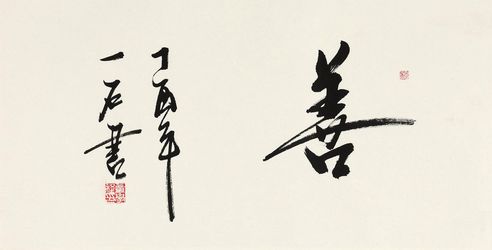 善
丁酉年
一石書